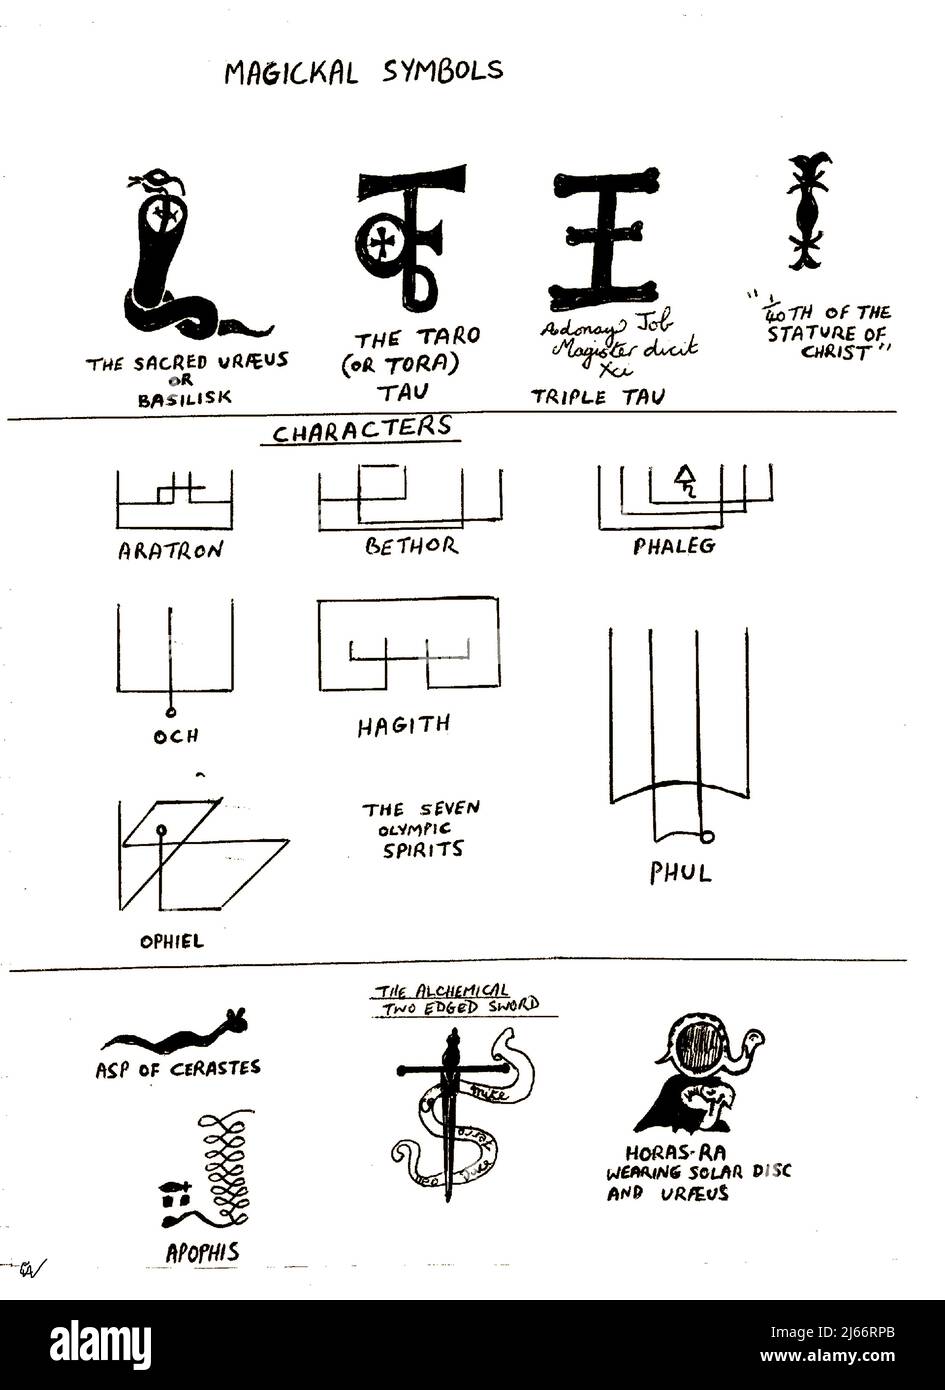 MAGICKAL SYMBOLS
THE SACRED URÆUS
OR
BASILISK
THE TARO
(OR TORA)
TAU
Adonay Job
Magister dicit
Xci
TRIPLE TAU
"1/40TH OF THE
STATURE OF
CHRIST"
CHARACTERS
ARATRON
BETHOR
PHALEG
OCH
HAGITH
PHUL
THE SEVEN
OLYMPIC
SPIRITS
OPHIEL
THE ALCHEMICAL
TWO EDGED SWORD
ASP OF CERASTES
APOPHIS
HORAS-RA
WEARING SOLAR DISC
AND URÆUS
alamy
Image ID: 2J66RPB
www.alamy.com